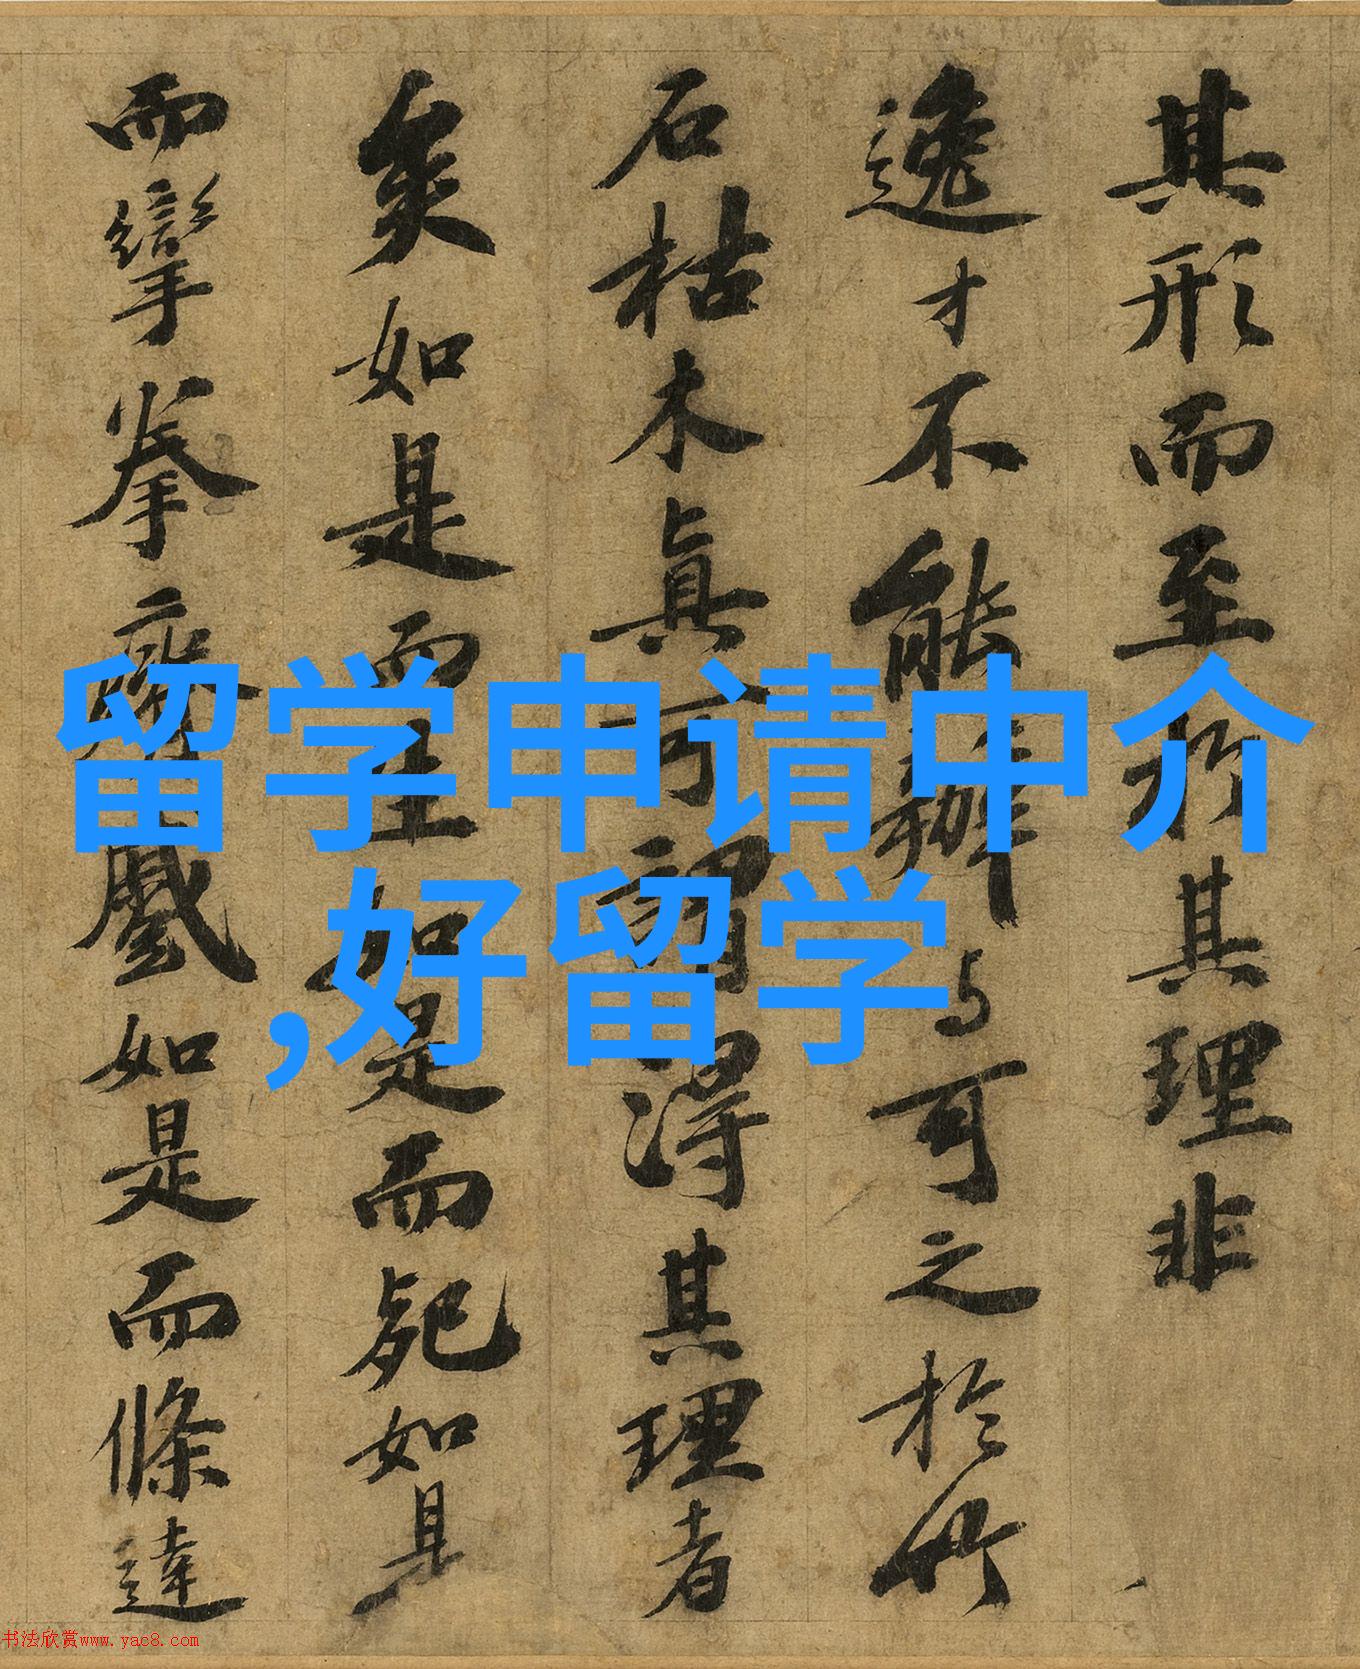 其形而至於其理非
逸才不能辦与可之於竹
石枯木眞可謂得其理者
矣如是而生如是而死如是
而攣拳瘠蹙如是而條達
留学申请中介
,好留学
书法欣赏www.yac8.com